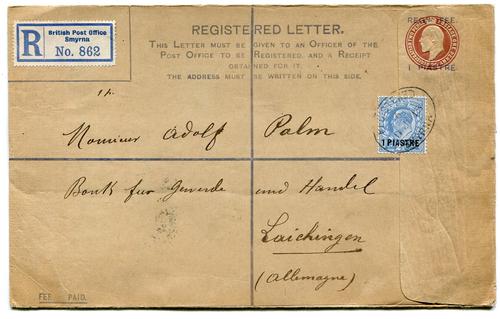 British Post Office
Smyrna
R No. 862
REGISTERED LETTER.
THIS LETTER MUST BE GIVEN TO AN OFFICER OF THE
POST OFFICE TO BE REGISTERED, AND A RECEIPT
OBTAINED FOR IT.
THE ADDRESS MUST BE WRITTEN ON THIS SIDE.
REGN. FEE.
1 PIASTRE.
1 PIASTRE
Monsieur Adolf Palm
Bank fur Gewerde und Handel
Laichingen
(Allemagne)
FEE PAID.